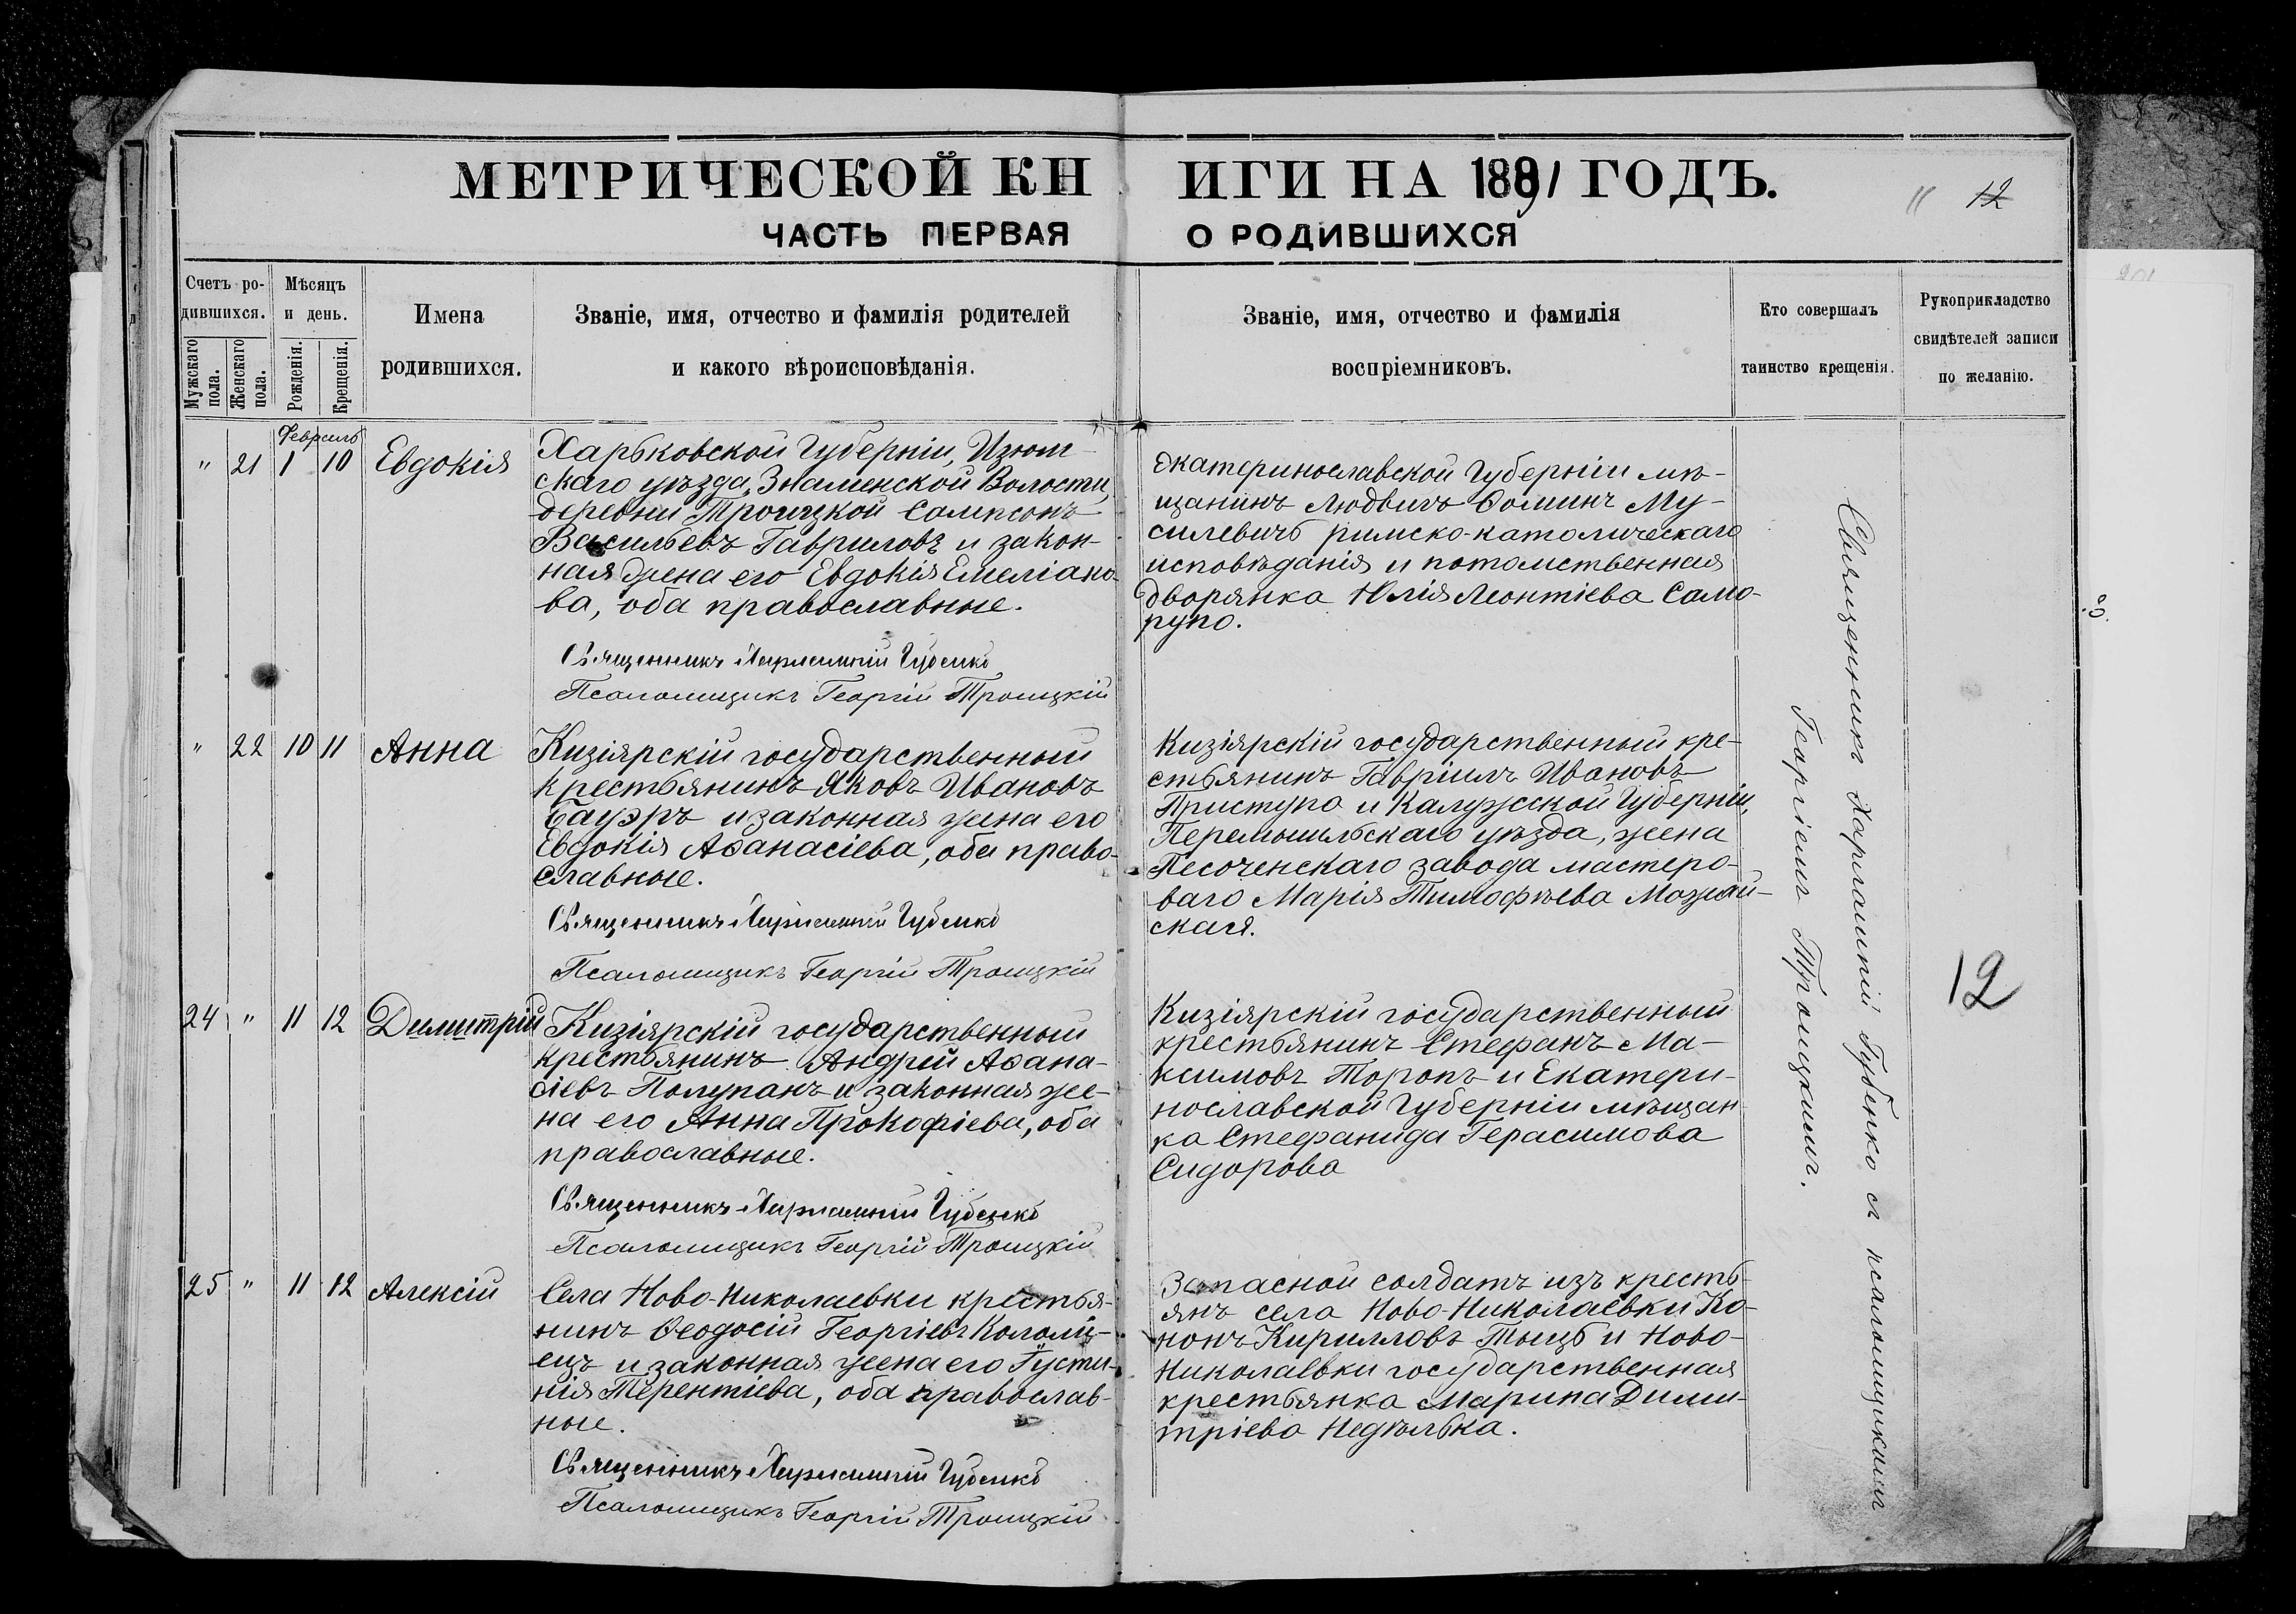 МЕТРИЧЕСКОЙ КНИГИ НА 1891 ГОДЪ.
11 12
ЧАСТЬ ПЕРВАЯ О РОДИВШИХСЯ
Счетъ родившихся.
Мужскаго пола.
Женскаго пола.
Мѣсяцъ и день.
Рожденія.
Крещенія.
Имена
родившихся.
Званіе, имя, отчество и фамилія родителей
и какого вѣроисповѣданія.
Званіе, имя, отчество и фамилія
воспріемниковъ.
Кто совершалъ
таинство крещенія.
Рукоприкладство
свидѣтелей записи
по желанію.
Февраль
" 21 1 10 Евдокія
Харьковской Губерніи, Изюм-
скаго уѣзда, Знаменской Волости,
деревни Троицкой Сампсонъ
Васильевъ Гавриловъ и закон-
ная жена его Евдокія Емеліано-
ва, оба православные.
Священникъ Харлампій Губенко
Псаломщикъ Георгій Троицкій
Екатеринославской Губерніи мѣ-
щанинъ Людвигъ Ѳоминъ Му-
силевичъ римско-католическаго
исповѣданія и потомственная
дворянка Юлія Леонтіева Само-
рупо.
" 22 10 11 Анна
Кизіярскій государственный
крестьянинъ Яковъ Ивановъ
Бауэръ и законная жена его
Евдокія Аѳанасіева, оба право-
славные.
Священникъ Харлампій Губенко
Псаломщикъ Георгій Троицкій
Кизіярскій государственный кре-
стьянинъ Гавріилъ Ивановъ
Приступа и Калужской Губерніи,
Перемышльскаго уѣзда, жена
Песоченскаго завода мастеро-
ваго Марія Тимофѣева Можай-
ская.
24 " 11 12 Димитрій
Кизіярскій государственный
крестьянинъ Андрей Аѳана-
сіевъ Полупанъ и законная же-
на его Анна Прокофіева, оба
православные.
Священникъ Харлампій Губенко
Псаломщикъ Георгій Троицкій
Кизіярскій государственный
крестьянинъ Стефанъ Ма-
ксимовъ Торопъ и Екатери-
нославской Губерніи мѣщан-
ка Стефанида Герасимова
Сидорова
25 " 11 12 Алексій
Села Ново-Николаевки крестья-
нинъ Ѳеодосій Георгіевъ Коломі-
ецъ и законная жена его Густи-
нія Терентіева, оба православ-
ные.
Священникъ Харлампій Губенко
Псаломщикъ Георгій Троицкій
Запасной солдатъ изъ кресть-
янъ села Ново-Николаевки Ко-
нонъ Кирилловъ Тыцъ и Ново-
Николаевки государственная
крестьянка Марина Дими-
тріева Недѣлька.
Священникъ Харлампій Губенко съ псаломщикомъ
Георгіемъ Троицкимъ.
12